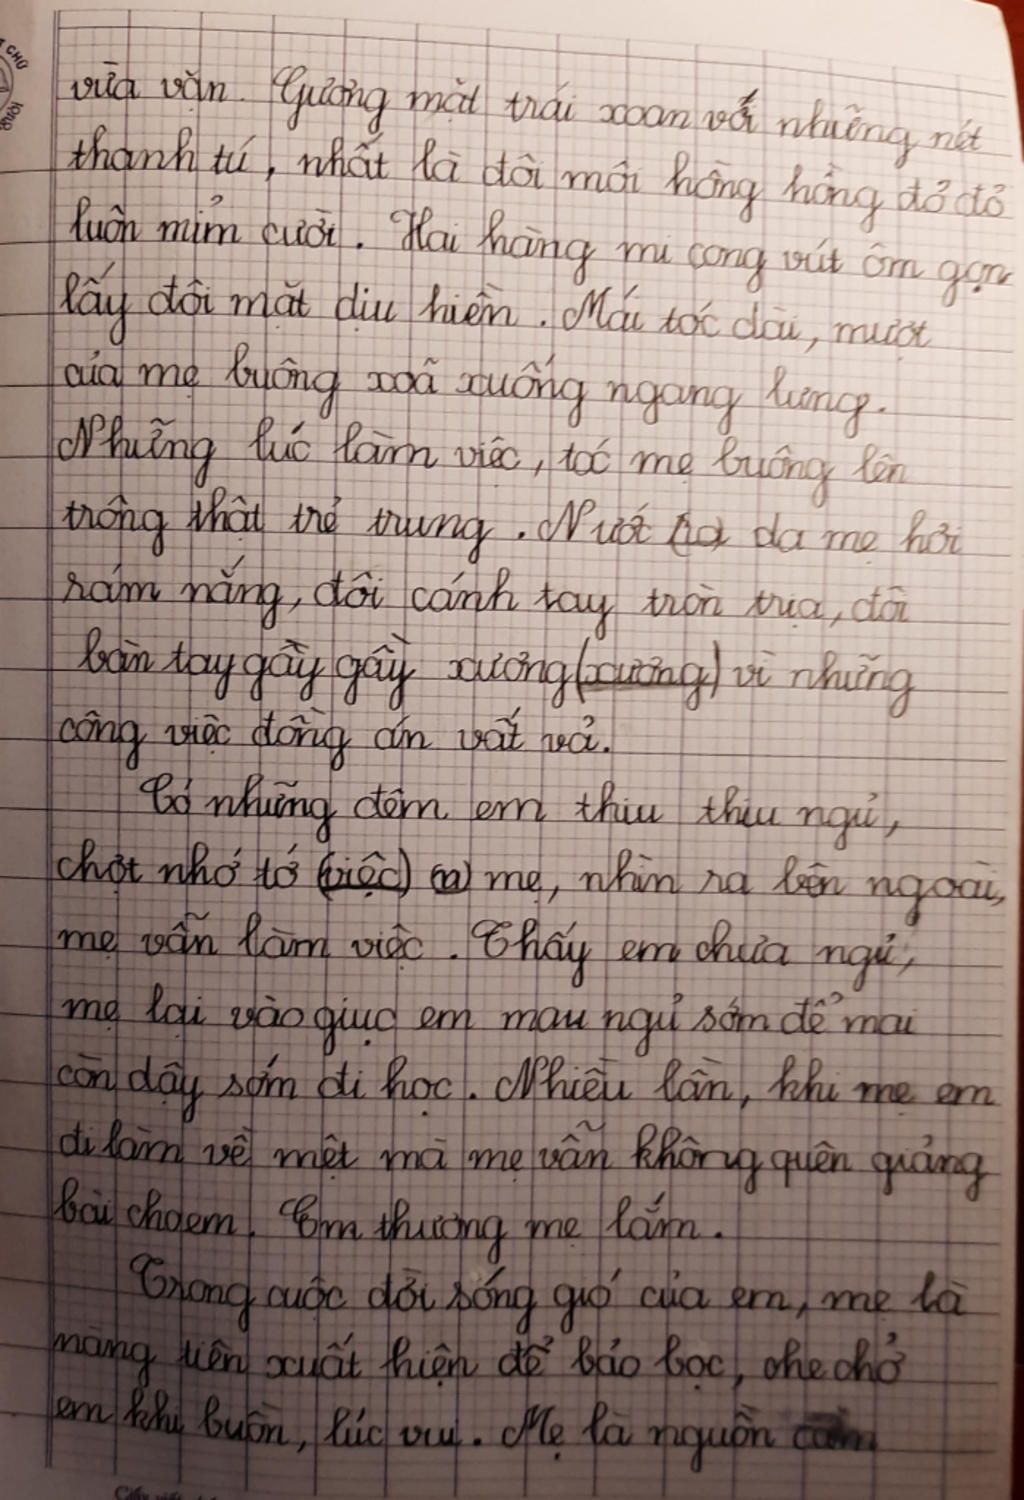 CHỮ
vừa vặn. Gương mặt trái xoan với những nét
thanh tú, nhất là đôi môi hồng hồng đỏ đỏ
luôn mỉm cười. Hai hàng mi cong vút ôm gọn
lấy đôi mắt dịu hiền. Mái tóc dài, mượt
của mẹ buông xoã xuống ngang lưng.
Những lúc làm việc, tóc mẹ buông lên
trông thật trẻ trung. Nước da mẹ hơi
rám nắng, đôi cánh tay tròn trịa, đôi
bàn tay gầy gầy xương (xương) vì những
công việc đồng án vất vả.
Có những đêm em thiu thiu ngủ,
chợt nhớ tớ (việc) mẹ, nhìn ra bên ngoài,
mẹ vẫn làm việc. Thấy em chưa ngủ,
mẹ lại vào giục em mau ngủ sớm để mai
còn dậy sớm đi học. Nhiều lần, khi mẹ em
đi làm về mệt mà mẹ vẫn không quên giảng
bài cho em. Em thương mẹ lắm.
Trong cuộc đời sóng gió của em, mẹ là
nàng tiên xuất hiện để bảo bọc, che chở
em khi buồn, lúc vui. Mẹ là nguồn